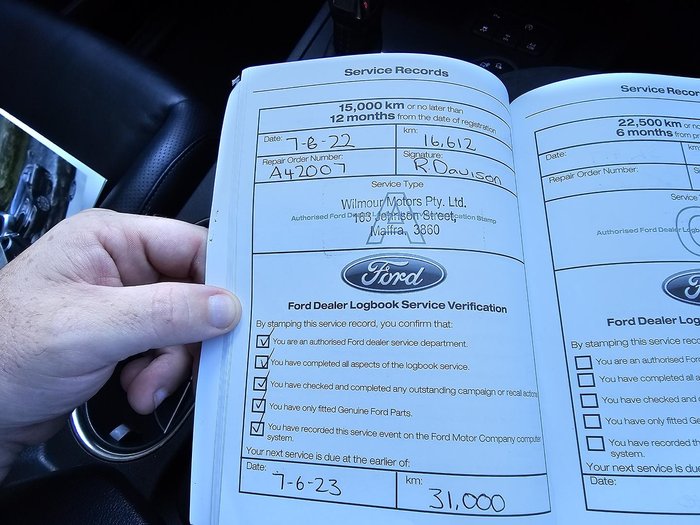 Service Records
15,000 km or no later than
12 months from the date of registration
Date: 7-6-22 km: 16,612
Repair Order Number: A42007 Signature: R. Davison
Service Type
Wilmour Motors Pty. Ltd.
Authorised Ford Dealer Logbook Service Verification Stamp
163 Johnson Street,
Maffra, 3860
A
Ford
Ford Dealer Logbook Service Verification
By stamping this service record, you confirm that:
You are an authorised Ford dealer service department.
You have completed all aspects of the logbook service.
You have checked and completed any outstanding campaign or recall actions
You have only fitted Genuine Ford Parts.
You have recorded this service event on the Ford Motor Company computer
system.
Your next service is due at the earlier of:
Date: 7-6-23 km: 31,000
Service Recor
22,500 km or no
6 months from pr
Date: km:
Repair Order Number: Sign
Service
Authorised Ford Dealer Logb
Ford
Ford Dealer Log
By stamping this service reco
You are an authorised Ford
You have completed all a
You have checked and c
You have only fitted Gen
You have recorded th
system.
Your next service is du
Date: